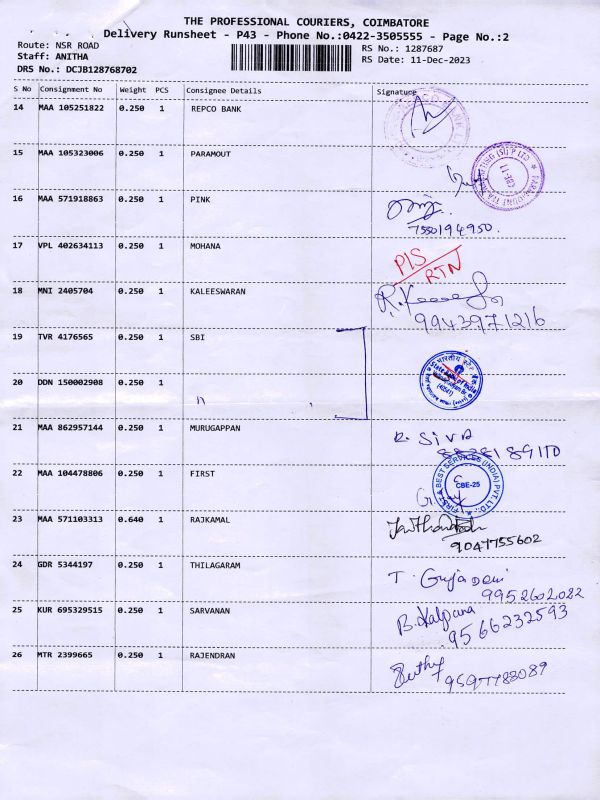 THE PROFESSIONAL COURIERS, COIMBATORE
Delivery Runsheet - P43 - Phone No.:0422-3505555 - Page No.:2
Route: NSR ROAD RS No.: 1287687
Staff: ANITHA RS Date: 11-Dec-2023
DRS No.: DCJB128768702
S No Consignment No Weight PCS Consignee Details Signature
14 MAA 105251822 0.250 1 REPCO BANK
15 MAA 105323006 0.250 1 PARAMOUT
16 MAA 571918863 0.250 1 PINK
7550194950.
17 VPL 402634113 0.250 1 MOHANA PIS
RTN
18 MNI 2405704 0.250 1 KALEESWARAN
9943971216
19 TVR 4176565 0.250 1 SBI
State Bank of India
20 DDN 150002908 0.250 1 "
21 MAA 862957144 0.250 1 MURUGAPPAN R. SIVA
22 MAA 104478806 0.250 1 FIRST
FIRST & BEST SERVICES (INDIA) PVT. LTD.
CBE-25
23 MAA 571103313 0.640 1 RAJKAMAL
9047755602
24 GDR 5344197 0.250 1 THILAGARAM T. Girija Devi
9952602082
25 KUR 695329515 0.250 1 SARVANAN B. Kalpana
9566232593
26 MTR 2399665 0.250 1 RAJENDRAN
9597783089